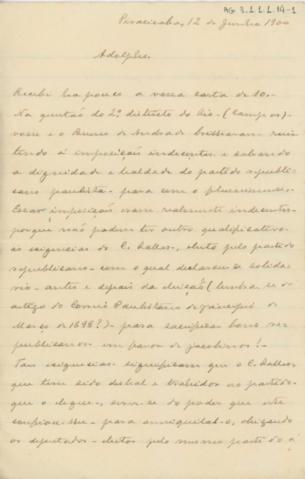 AG 3.1.1.1.14-1
Piracicaba, 12 de Junho 1900
Adolpho.
Recebi ha pouco a vossa carta de 10.
Na questão do 2º districto do Rio - (Campos)
vocês e o Bueno de Andrada brilharam resis
tindo á imposição indecente e salvando
a dignidade e lealdade do partido republi
cano paulista - para com o fluminense.
Essa imposição eram realmente indecentes
porque não podem ter outro qualificativo
as exigencias do C. Salles, eleito pelo partido
republicano - com o qual declarou-se solida
rio - antes e depois da eleição (lembra-se do
artigo do Correio Paulistano de principio de
Março de 1898?) - para sacrificar bons re
publicanos em favor de jacobinos?
Taes exigencias significam que o C. Salles,
que tem sido desleal e trahidor ao partido
que o elegeu, serve-se do poder que este
confiou-lhe - para anniquilal-o, obrigando
os deputados - eleitos pelo mesmo partido á